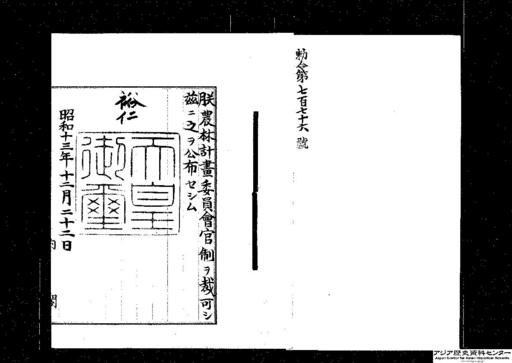 勅令第七百七十六號
朕農林計畫委員會官制ヲ裁可シ
茲ニ之ヲ公布セシム
裕仁
天皇
御璽
昭和十三年十二月二十二日
内閣
アジア歴史資料センター
Japan Center for Asian Historical Records